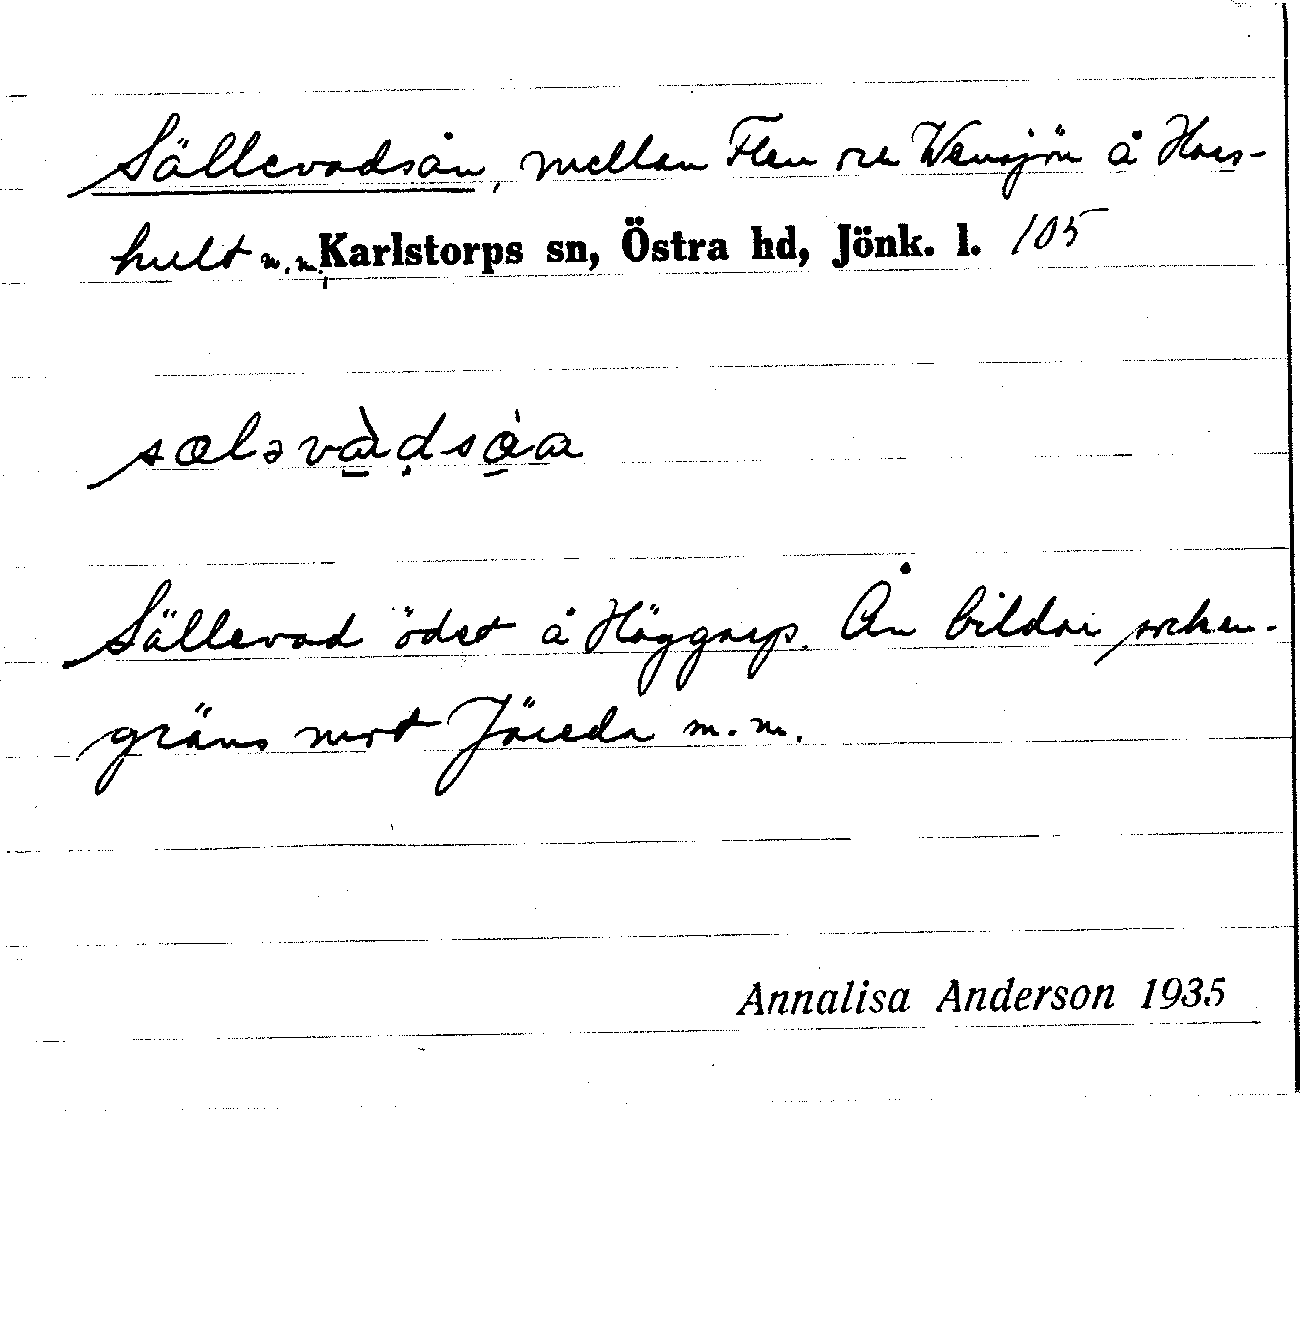 Sällevadsån, mellan Flen och Wensjön å Hors-
hult m.m. Karlstorps sn, Östra hd, Jönk. l. 105
sæləvadsåa
Sällevad ödet å Höggarp. Ån bildar socken-
gräns mot Järeda m.m.
Annalisa Anderson 1935